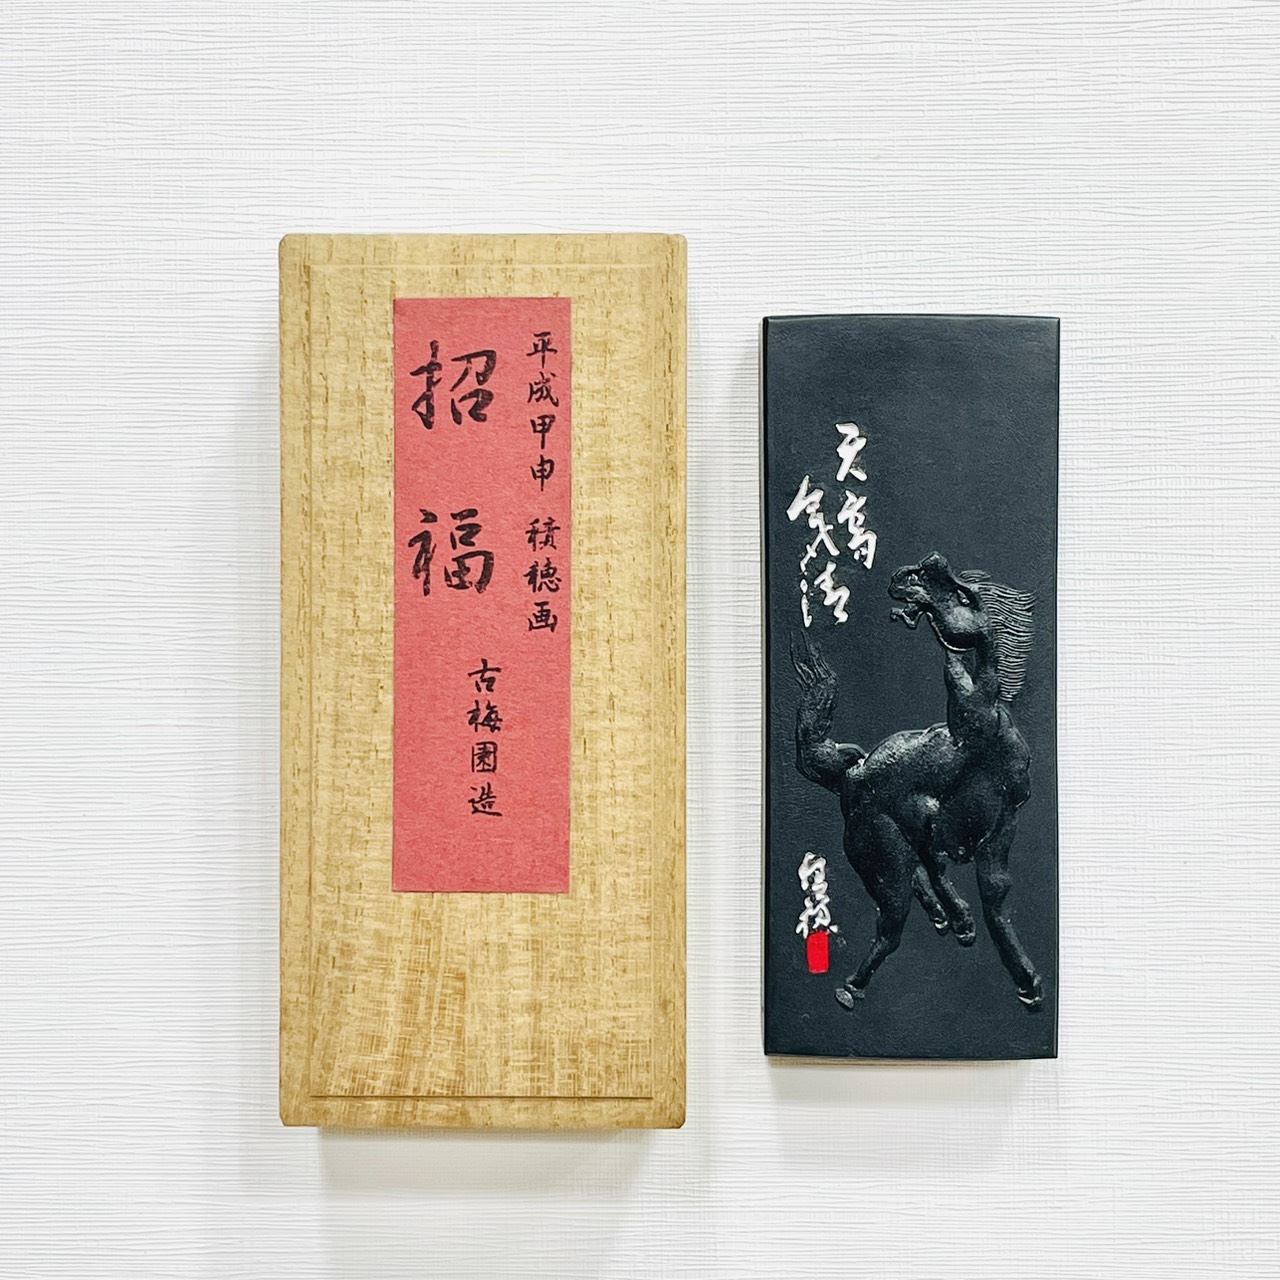 平成甲申 積穂画
招福
古梅園造
天高
気清